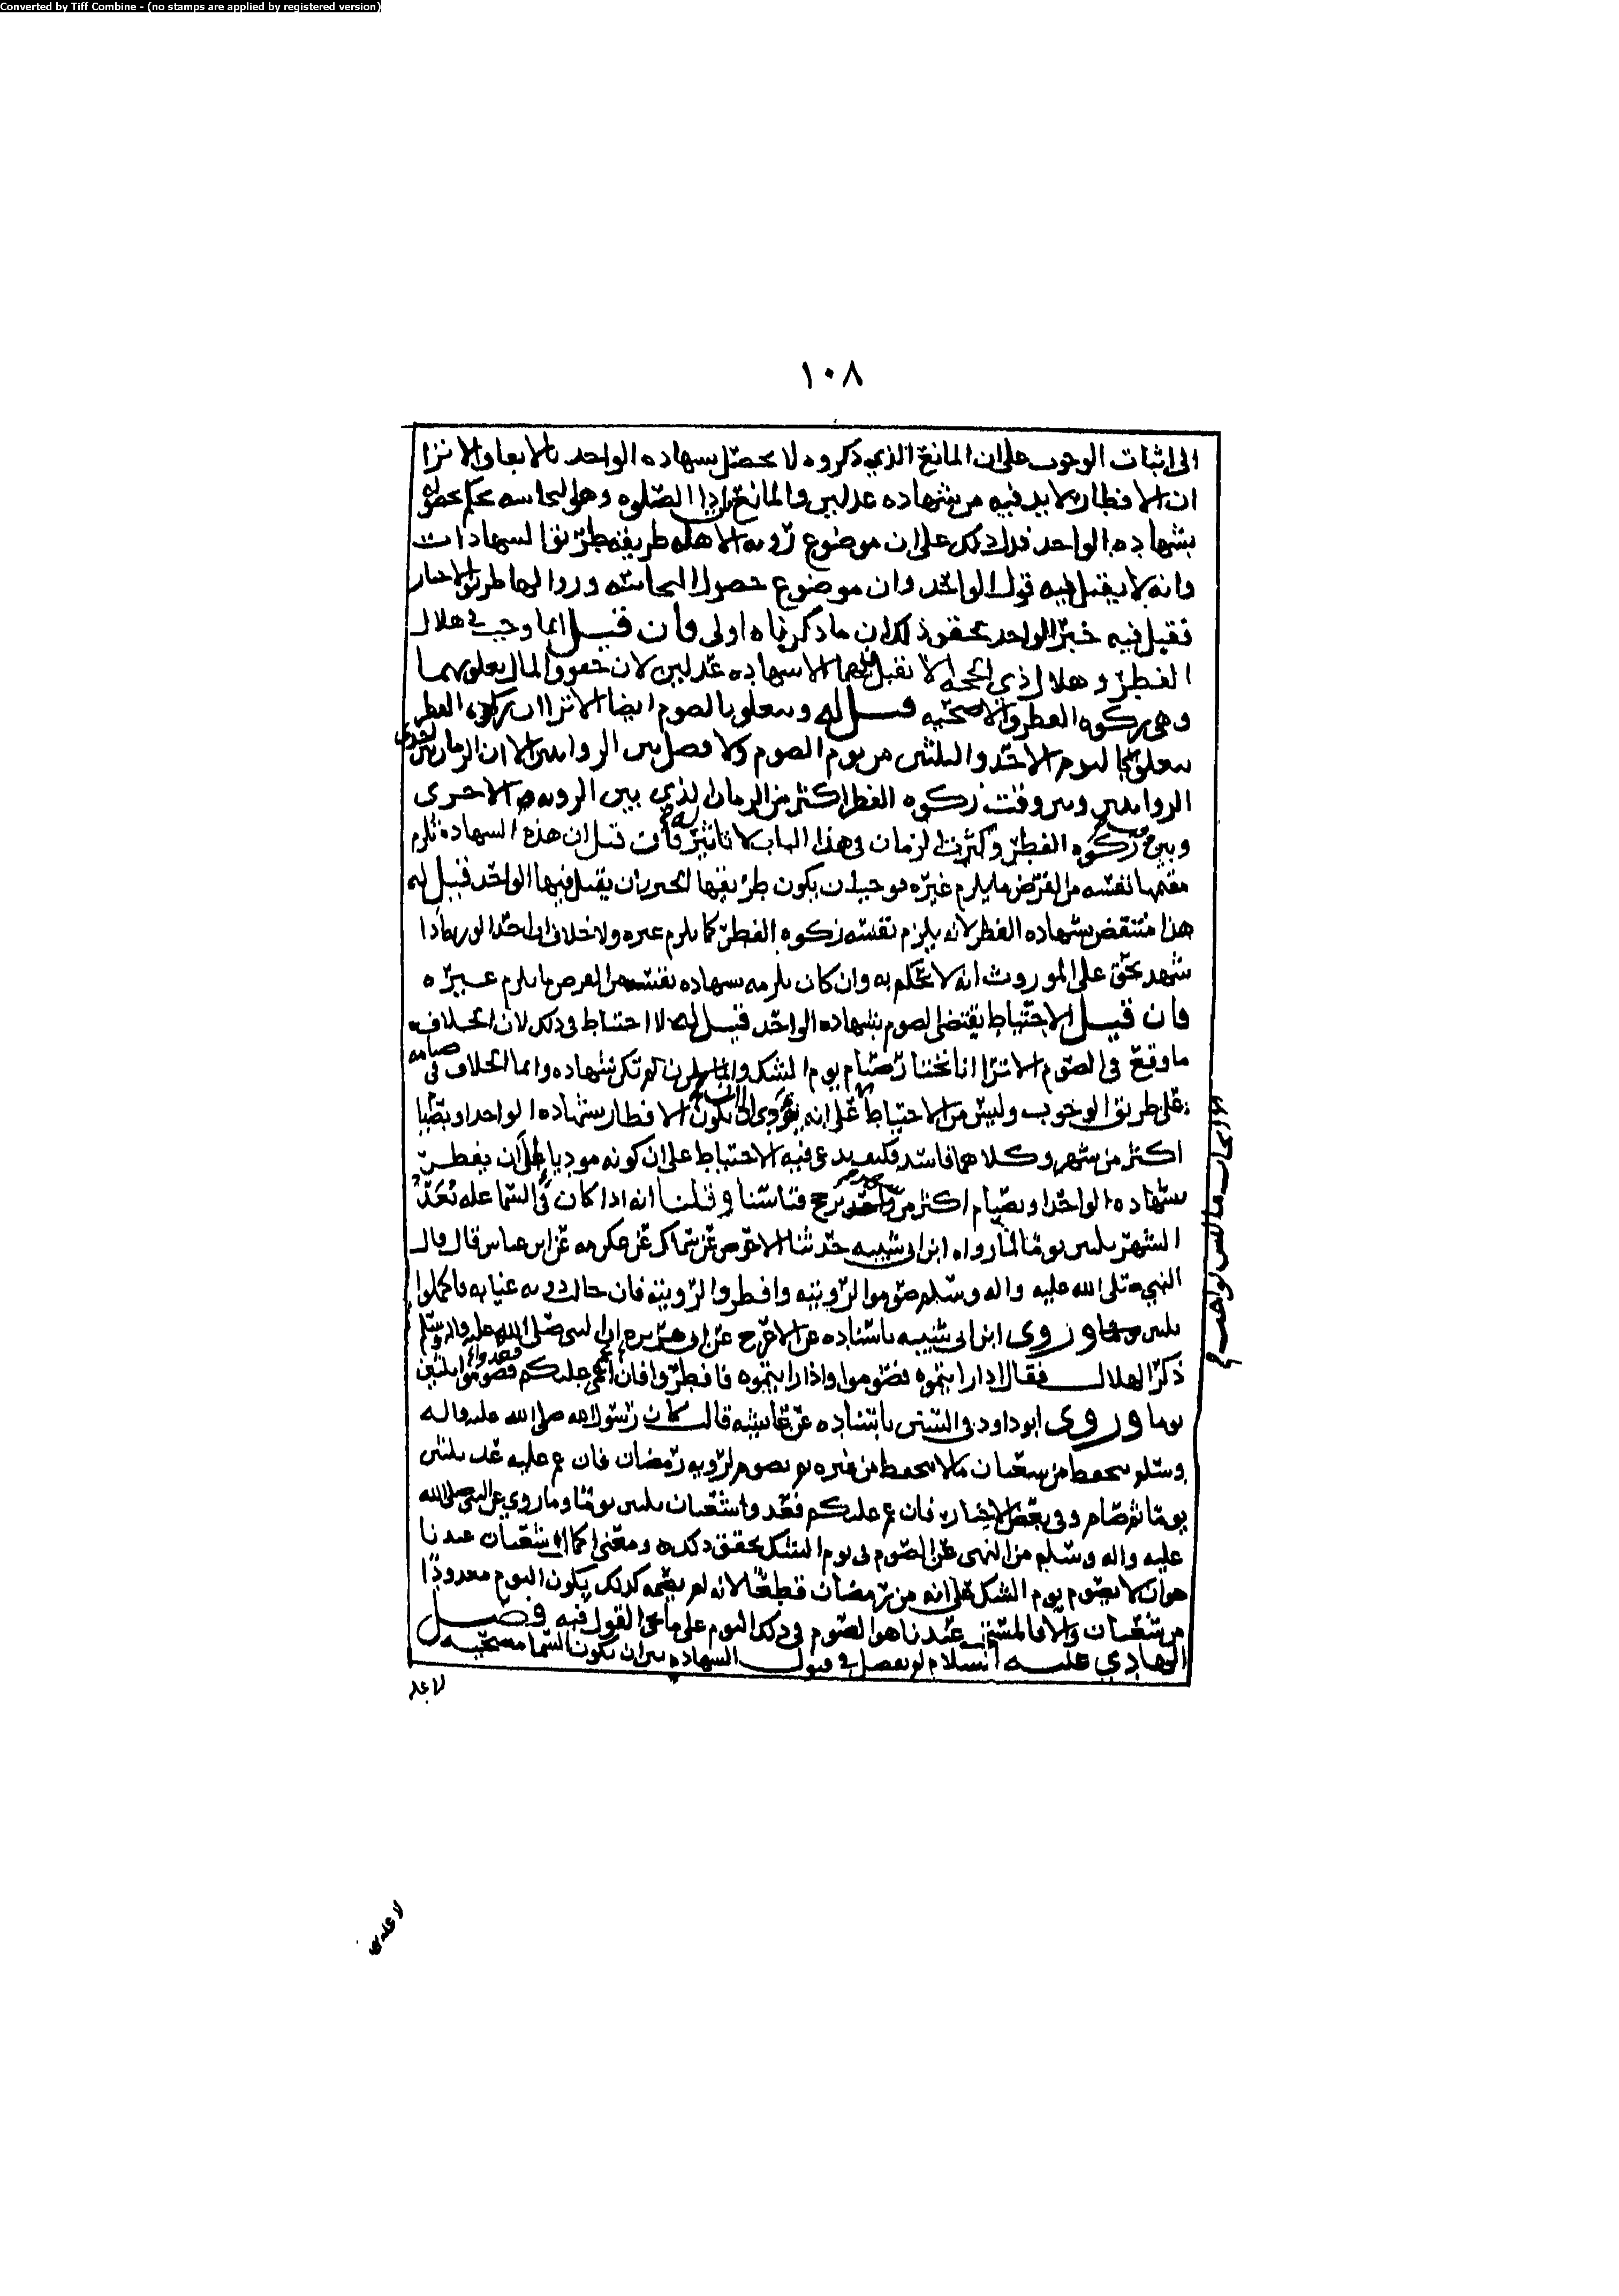 Converted by Tiff Combine - (no stamps are applied by registered version)
١٠٨
الى اثبات الوجوب على ان المانع الذي ذكروه لا يحصل بشهاده الواحد بالاتفاق الا ترا
ان الافطار لا بد فيه من شهاده عدلين والمانع من اداا الصلوه وهو النجاسه يحكم بحصوله
بشهاده الواحد فدل ذلك على ان موضوع رويه الاهله طريقه طريق الشهادات
وانه لا يقبل فيه قول الواحد وان موضوع حصول النجاسه وردوالها طريق الاخبار
فقبل فيه خبر الواحد تحقق ذلك ان ما ذكرناه اولى فان قيل انما وجب في هلال
الفطر وهلال ذي الحجه الا نقبل فيهما الا شهاده عدلين لان حقوق المال يتعلق بهما
وهي زكوه الفطر والاضحيه قيل له ويتعلق بالصوم ايضا الا ترا ان زكوه الفطر
متعلق باليوم الاحد والثلثين من يوم الصوم ولا فصل بين الروايتين الا ان الزمان بين
الروايتين وبين وقت زكوه الفطر اكثر من الزمان الذي بين الرويه الاخرى
وبين زكوه الفطر وكثره الزمان في هذا الباب لا تاثير له فان قيل ان هذه الشهاده تلزم
مقيمها نفسه من الفرض ما يلزم غيره فوجب ان يكون طريقها الخبر بان يقبل فيها الواحد قيل له
هذا منتقض بشهاده الفطر لانه يلزم نفسه زكوه الفطر كما يلزم غيره ولا خلاف ان احد الورثه اذا
شهد بحق على الموروث انه لا يحكم به وان كان يلزمه بشهاده نفسه من الفرض ما يلزم غيره
فان قيل الاحتياط يقتضي الصوم بشهاده الواحد قيل له لا احتياط في ذلك لان الخلاف
ما وقع في الصوم الا ترا انا نختار صيام يوم الشك وان لم تكن شهاده وانما الخلاف في صيامه
على طريق الوجوب وليس من الاحتياط على انه يودي الى ان يكون الافطار بشهاده الواحد او بصيام
اكثر من شهر وكلاهما فاسد فكيف يدعى فيه الاحتياط على ان كونه موديا الى ان يفطر
بشهاده الواحد او بصيام اكثر من شهر يرجح قياسنا وقلنا انه اذا كان في السما عله نعد
الشهر ثلثين يوما لما رواه ابن ابي شيبه حدثنا الاحوص عن سماك عن عكرمه عن ابن عباس قال قال
النبي صلى الله عليه واله وسلم صوموا لرويته وافطروا لرويته فان حالت دونه غيايه فاكملوا
ثلثين يوما وروى ابن ابي شيبه باسناده عن الاعرج عن ابي هريره ان النبي صلى الله عليه واله وسلم
ذكر الهلال فقال اذا رايتموه فصوموا واذا رايتموه فافطروا فان غمي عليكم فصوموا ثلثين
يوما وروى ابو داود في السنن باسناده عن عائشه قالت كان رسول الله صلى الله عليه واله
وسلم يتحفظ من شعبان ما لا يتحفظ من غيره ثم يصوم لرويه رمضان فان غم عليه عد ثلثين
يوما ثم صام وفي بعض الاخبار فان غم عليكم فعدوا شعبان ثلثين يوما وما روي عن النبي صلى الله
عليه واله وسلم من النهي عن الصوم في يوم الشك يحقق ذلك ومعنى اكمال شعبان عندنا
هو ان لا يصوم يوم الشك على انه من رمضان قطعا لانه لم يصمه كذلك يكون اليوم معدودا
من شعبان والا فالمستحب عندنا هو الصوم في ذلك اليوم على ما مضى القول فيه فصل
الهادي عليه السلام لم يفصل في قبول الشهاده بين ان تكون السما مصحيه
لا عله